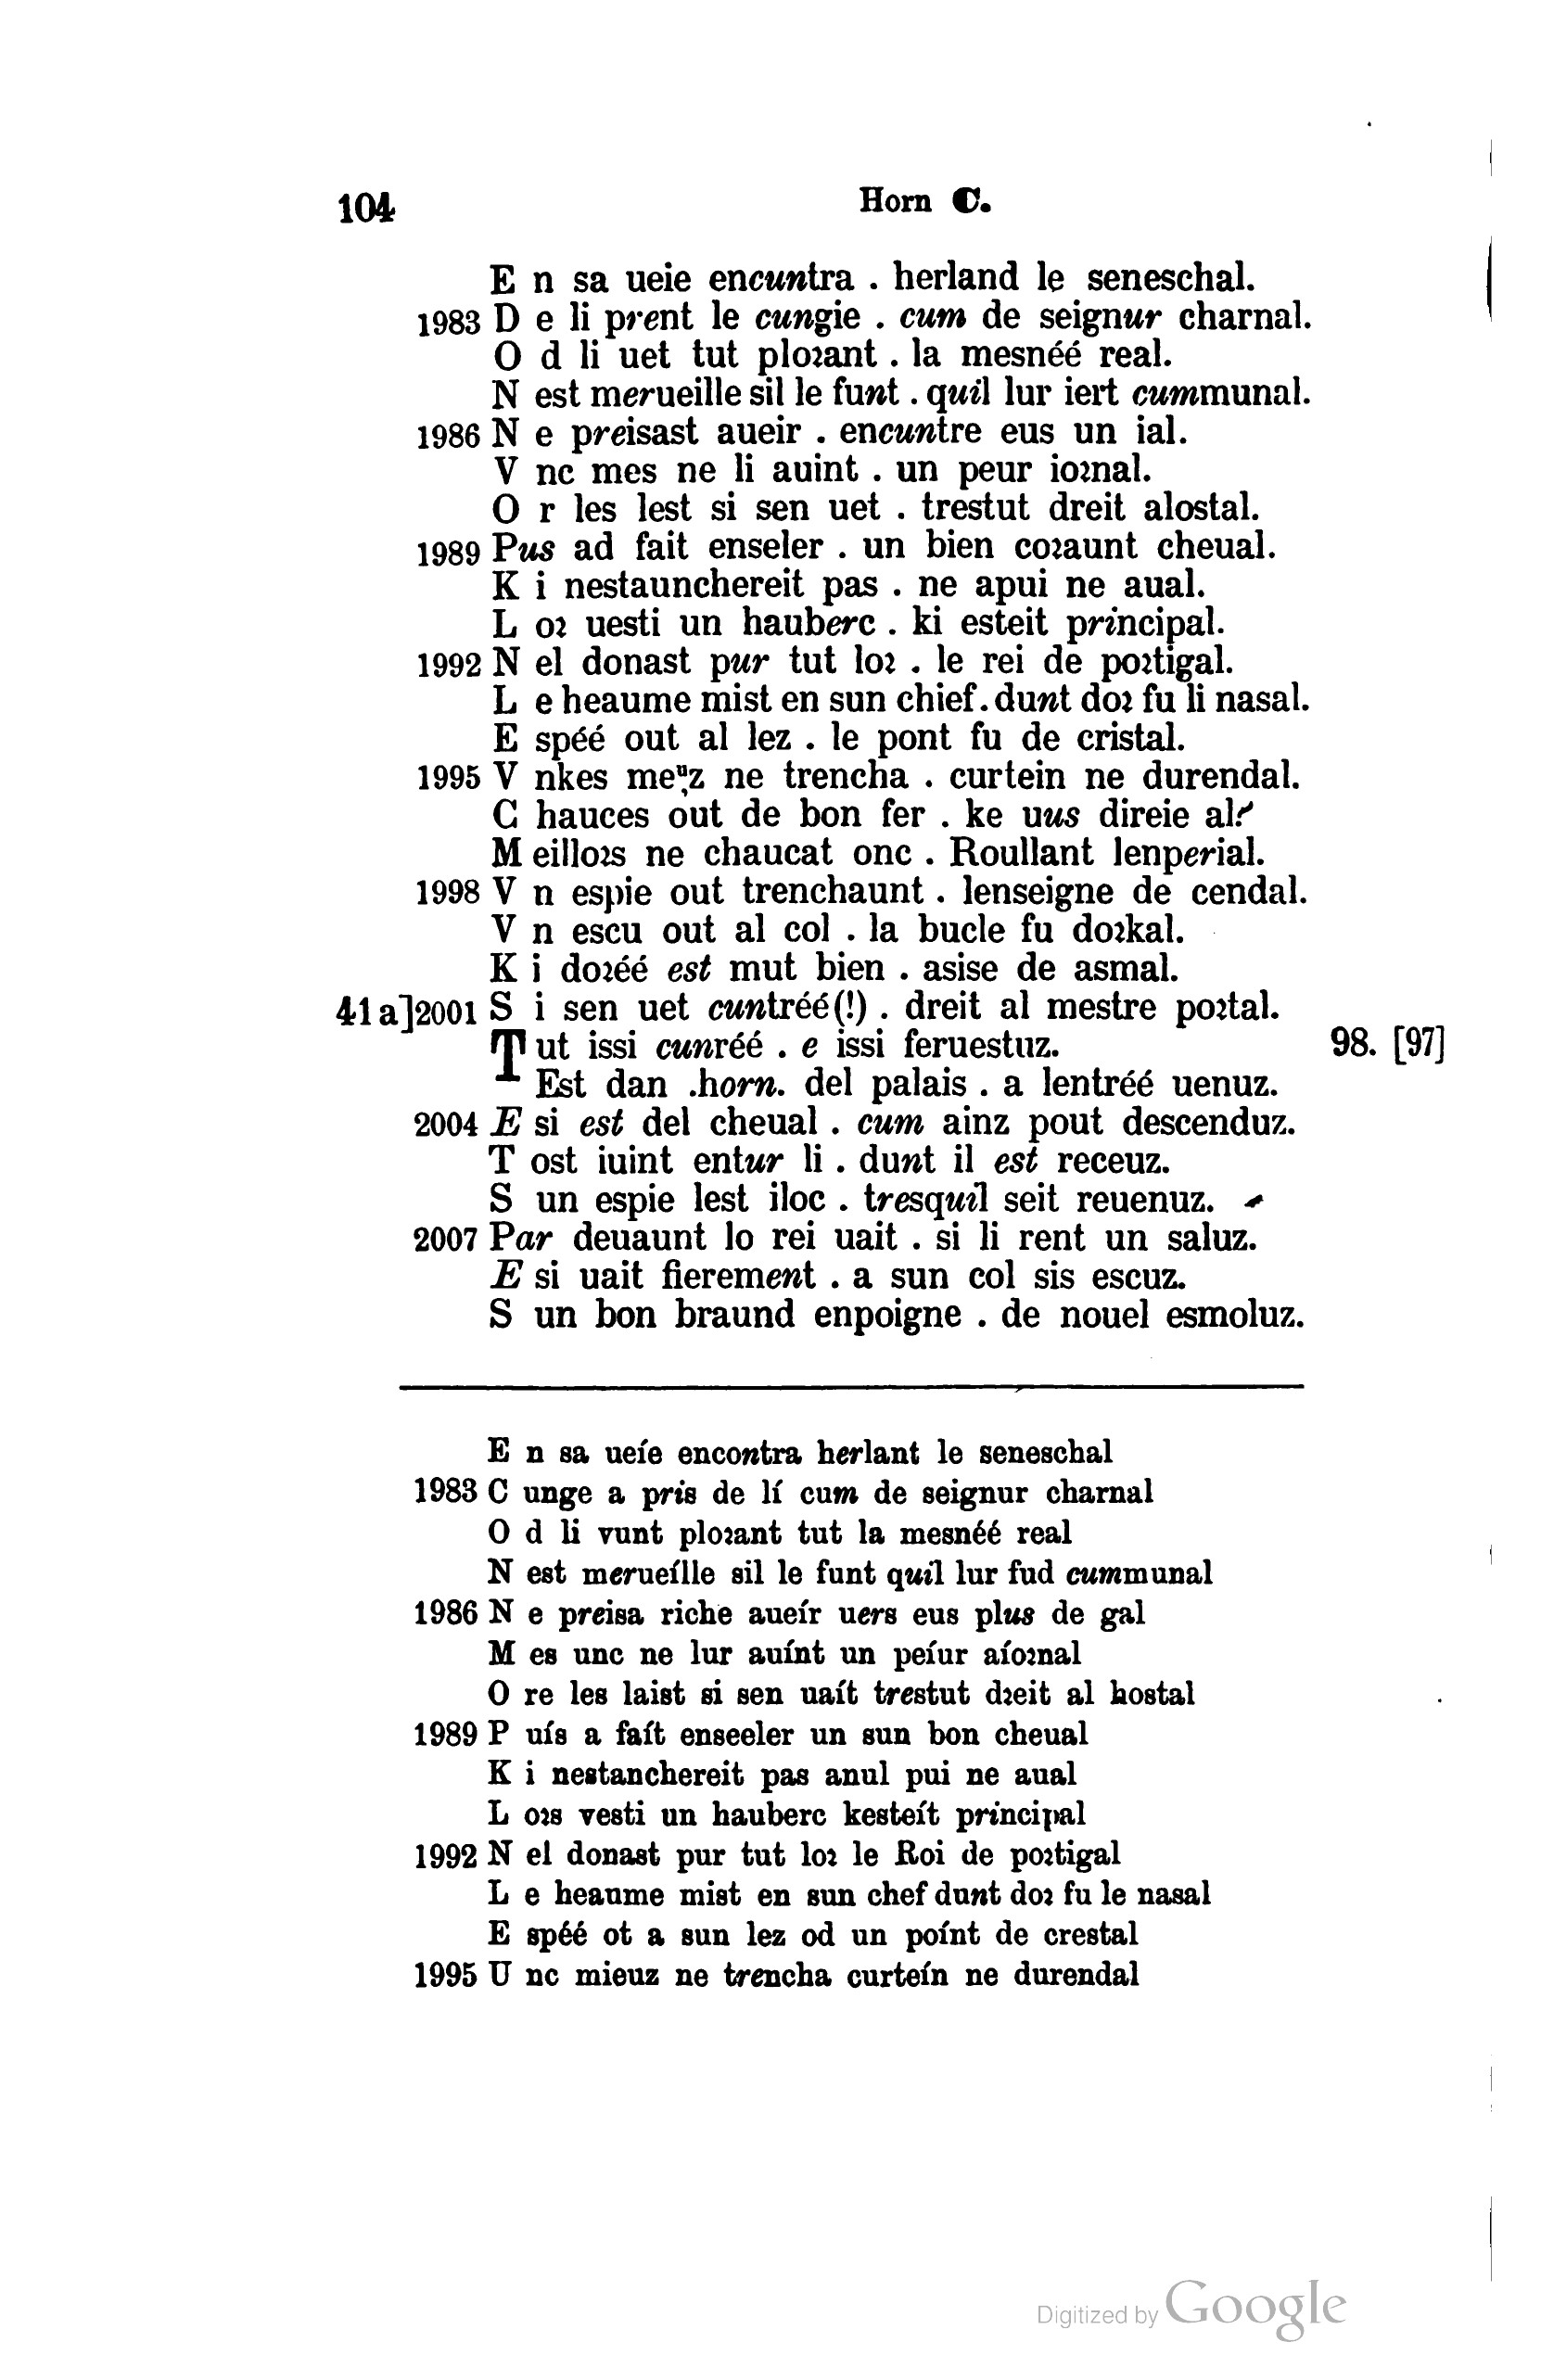 104 Horn C.
E n sa ueie encuntra . herland le seneschal.
1983 D e li prent le cungie . cum de seignur charnal.
O d li uet tut ploꝛant . la mesnéé real.
N est merueille sil le funt . quil lur iert cummunal.
1986 N e preisast aueir . encuntre eus un ial.
V nc mes ne li auint . un peur ioꝛnal.
O r les lest si sen uet . trestut dreit alostal.
1989 Pus ad fait enseler . un bien coꝛaunt cheual.
K i nestaunchereit pas . ne apui ne aual.
L oꝛ uesti un hauberc . ki esteit principal.
1992 N el donast pur tut loꝛ . le rei de poꝛtigal.
L e heaume mist en sun chief . dunt doꝛ fu li nasal.
E spéé out al lez . le pont fu de cristal.
1995 V nkes meuz ne trencha . curtein ne durendal.
C hauces out de bon fer . ke uus direie al?
M eilloꝛs ne chaucat onc . Roullant lenperial.
1998 V n espie out trenchaunt . lenseigne de cendal.
V n escu out al col . la bucle fu doꝛkal.
K i doꝛéé est mut bien . asise de asmal.
41a]2001 S i sen uet cuntréé(!) . dreit al mestre poꝛtal.
Tut issi cunréé . e issi feruestuz. 98. [97]
Est dan .horn. del palais . a lentréé uenuz.
2004 E si est del cheual . cum ainz pout descenduz.
T ost iuint entur li . dunt il est receuz.
S un espie lest iloc . tresquil seit reuenuz.
2007 Par deuaunt lo rei uait . si li rent un saluz.
E si uait fierement . a sun col sis escuz.
S un bon braund enpoigne . de nouel esmoluz.
E n sa ueíe encontra herlant le seneschal
1983 C unge a pris de lí cum de seignur charnal
O d li vunt ploꝛant tut la mesnéé real
N est merueílle sil le funt quil lur fud cummunal
1986 N e preisa riche aueír uers eus plus de gal
M es unc ne lur auínt un peíur aíoꝛnal
O re les laist si sen uaít trestut dꝛeit al hostal
1989 P uís a faít enseeler un sun bon cheual
K i nestanchereit pas anul pui ne aual
L oꝛs vesti un hauberc kesteít principal
1992 N el donast pur tut loꝛ le Roi de poꝛtigal
L e heaume mist en sun chef dunt doꝛ fu le nasal
E spéé ot a sun lez od un poínt de crestal
1995 U nc mieuz ne trencha curteín ne durendal
Digitized by Google